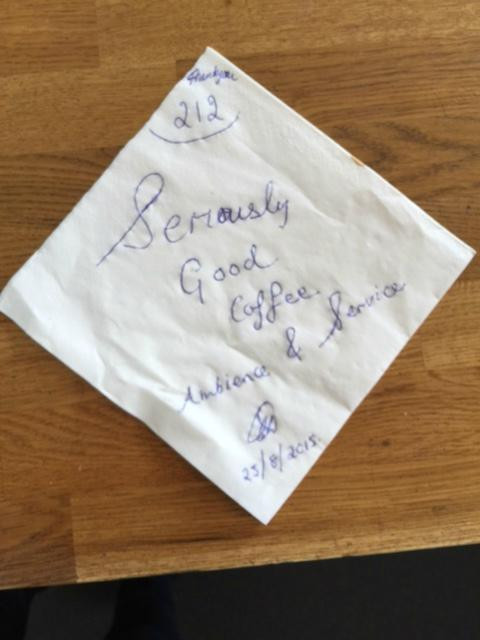 Thankyou
212
Seriously
Good
Coffee
& Service
Ambience
25/8/2015